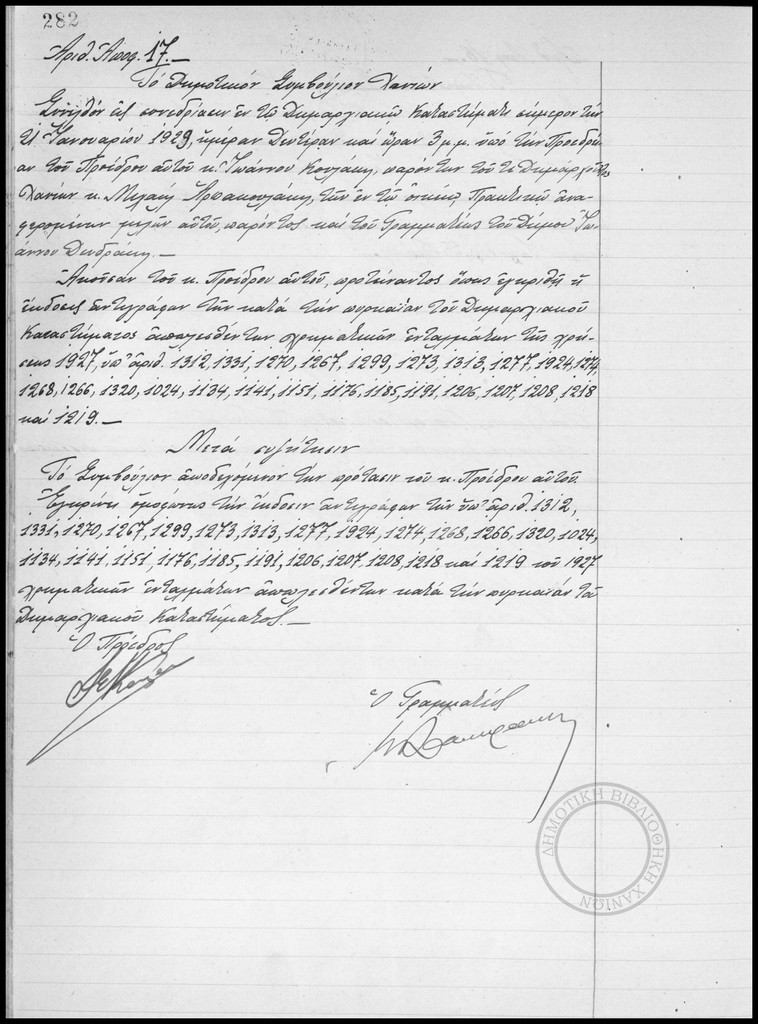 282
Ἀριθ. Ἀποφ. 17.—
Τό Δημοτικόν Συμβούλιον Χανίων
Συνῆλθόν εἰς συνεδρίασιν ἐν τῷ Δημαρχιακῷ Καταστήματι σήμερον τήν
21 Ἰανουαρίου 1929, ἡμέραν Δευτέραν καί ὥραν 3 μ.μ. ὑπό τήν Προεδρί-
αν τοῦ Προέδρου αὐτοῦ κ. Ἰωάννου, παρόντων τοῦ τε Δημάρχου
Χανίων κ., τῶν ἐν τῷ Πρακτικῷ ἀνα-
φερομένων μελῶν αὐτοῦ, παρόντος καί τοῦ Γραμματέως τοῦ Δήμου Ἰω-
άννου Δενδράκη.—
Ἀκοῦσαν τοῦ κ. Προέδρου αὐτοῦ, προτείναντος ὅπως ἐγκριθῇ ἡ
ἔκδοσις ἀντιγράφων τῶν κατά τήν πυρκαϊάν τοῦ Δημαρχιακοῦ
Καταστήματος ἀπολεσθέντων χρηματικῶν ἐνταλμάτων τῆς χρή-
σεως 1927, ὑπ' ἀριθ. 1312, 1331, 1270, 1267, 1299, 1273, 1313, 1277, 1924, 1274,
1268, 1266, 1320, 1024, 1134, 1141, 1151, 1176, 1185, 1191, 1206, 1207, 1208, 1218
καί 1219.—
Μετά συζήτησιν
Τό Συμβούλιον ἀποδεχόμενον τήν πρότασιν τοῦ κ. Προέδρου αὐτοῦ.
Ἐγκρίνει ὁμοφώνως τήν ἔκδοσιν ἀντιγράφων τῶν ὑπ' ἀριθ. 1312,
1331, 1270, 1267, 1299, 1273, 1313, 1277, 1924, 1274, 1268, 1266, 1320, 1024,
1134, 1141, 1151, 1176, 1185, 1191, 1206, 1207, 1208, 1218 καί 1219 τοῦ 1927
χρηματικῶν ἐνταλμάτων ἀπολεσθέντων κατά τήν πυρκαϊάν τοῦ
Δημαρχιακοῦ Καταστήματος.—
Ὁ Πρόεδρος
Ὁ Γραμματεύς
ΔΗΜΟΤΙΚΗ ΒΙΒΛΙΟΘΗΚΗ ΧΑΝΙΩΝ